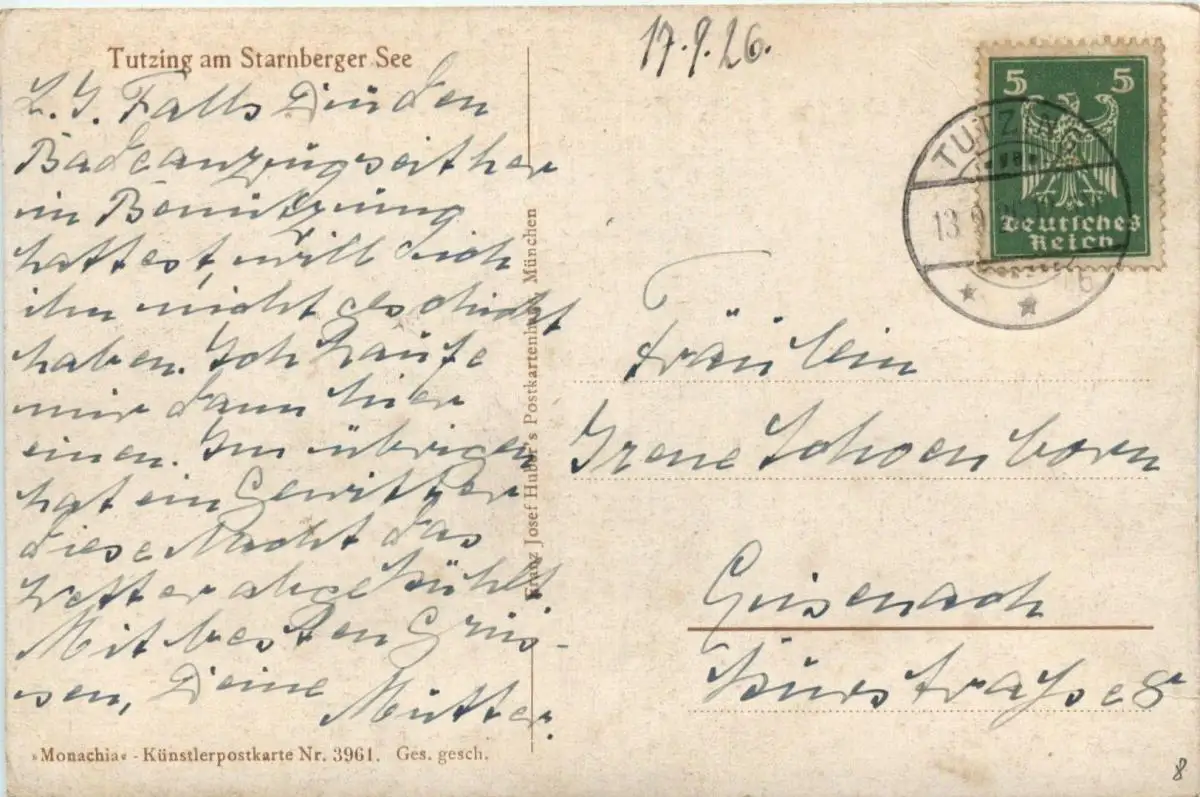 Tutzing am Starnberger See
L. I. Falls Du den
Badeanzug seither
in Benützung
hattest, will Dich
ihn nicht geschickt
haben. Ich kaufe
mir dann hier
einen. Im übrigen
hat ein Gewitter
diese Nacht das
Wetter abgekühlt
Mit besten Grüs-
sen, Deine
Mutter.
»Monachia« - Künstlerpostkarte Nr. 3961. Ges. gesch.
Franz Josef Huber's Postkartenhaus, München
17.9.26.
5 5
Deutsches
Reich
TUTZING
13
Fräulein
Irene Schoenborn
Eisenach
8